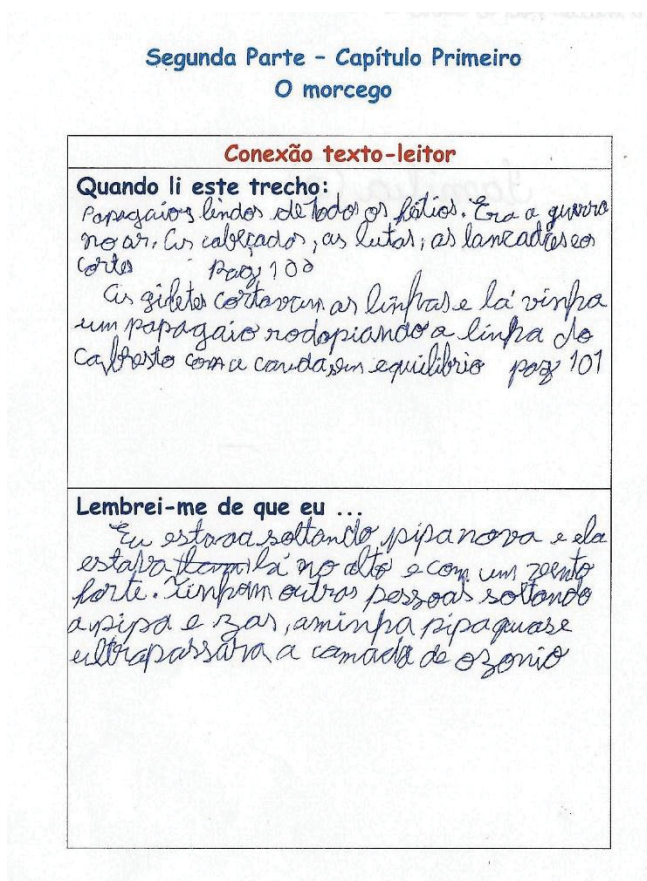 Segunda Parte – Capítulo Primeiro
O morcego
Conexão texto-leitor
Quando li este trecho:
Papagaios lindos de todos os feitios. Era a guerra
no ar. As cabeçadas, as lutas, as lançadas e os
cortes pag 100
As giletes cortavam as linhas e lá vinha
um papagaio rodopiando a linha do
cabresto com a cauda sem equilíbrio pag 101
Lembrei-me de que eu ...
Eu estava soltando pipa nova e ela
estava lá no alto e com um vento
forte. Tinham outras pessoas soltando
a pipa e zas, a minha pipa quase
ultrapassava a camada de ozonio